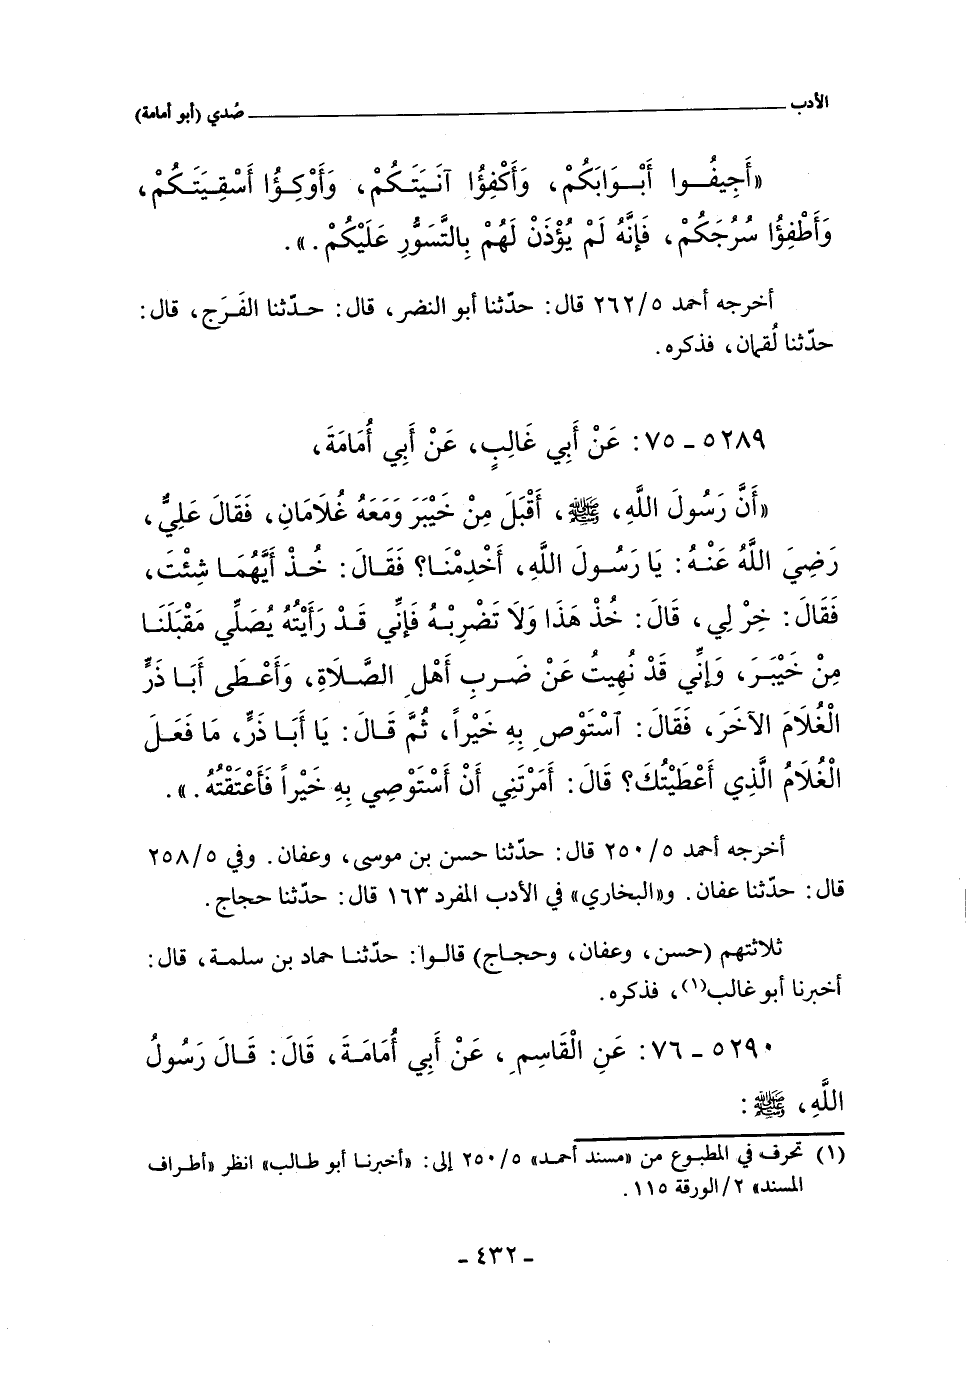 الأدب ـــــــــــ صُدي (أبو أمامة)
«أَجِيفُوا أَبْوَابَكُمْ، وَأَكْفِؤُا آنَيَتَكُمْ، وَأَوْكِؤُا أَسْقِيَتَكُمْ،
وَأَطْفِؤُا سُرُجَكُمْ، فَإِنَّهُ لَمْ يُؤْذَنْ لَهُمْ بِالتَّسَوُّرِ عَلَيْكُمْ.».
أخرجه أحمد ٢٦٢/٥ قال: حدّثنا أبو النضر، قال: حدّثنا الفَرَج، قال:
حدّثنا لُقمان، فذكره.
٥٢٨٩ ـ ٧٥: عَنْ أَبِي غَالِبٍ، عَنْ أَبِي أُمَامَةَ،
«أَنَّ رَسُولَ اللَّهِ، ﷺ، أَقْبَلَ مِنْ خَيْبَرَ وَمَعَهُ غُلَامَانِ، فَقَالَ عَلِيٌّ،
رَضِيَ اللَّهُ عَنْهُ: يَا رَسُولَ اللَّهِ، أَخْدِمْنَا؟ فَقَالَ: خُذْ أَيَّهُمَا شِئْتَ،
فَقَالَ: خِرْ لِي، قَالَ: خُذْ هَذَا وَلَا تَضْرِبْهُ فَإِنِّي قَدْ رَأَيْتُهُ يُصَلِّي مَقْبَلَنَا
مِنْ خَيْبَرَ، وَإِنِّي قَدْ نُهِيتُ عَنْ ضَرْبِ أَهْلِ الصَّلَاةِ، وَأَعْطَى أَبَا ذَرٍّ
الْغُلَامَ الآخَرَ، فَقَالَ: اسْتَوْصِ بِهِ خَيْراً، ثُمَّ قَالَ: يَا أَبَا ذَرٍّ، مَا فَعَلَ
الْغُلَامُ الَّذِي أَعْطَيْتُكَ؟ قَالَ: أَمَرْتَنِي أَنْ أَسْتَوْصِي بِهِ خَيْراً فَأَعْتَقْتُهُ.».
أخرجه أحمد ٢٥٠/٥ قال: حدّثنا حسن بن موسى، وعفان. وفي ٢٥٨/٥
قال: حدّثنا عفان. و«البخاري» في الأدب المفرد ١٦٣ قال: حدّثنا حجاج.
ثلاثتهم (حسن، وعفان، وحجاج) قالوا: حدّثنا حماد بن سلمة، قال:
أخبرنا أبو غالب(١)، فذكره.
٥٢٩٠ ـ ٧٦: عَنِ الْقَاسِمِ، عَنْ أَبِي أُمَامَةَ، قَالَ: قَالَ رَسُولُ
اللَّهِ، ﷺ:
(١) تحرف في المطبوع من «مسند أحمد» ٢٥٠/٥ إلى: «أخبرنا أبو طالب» انظر «أطراف
المسند» ٢/الورقة ١١٥.
ـ ٤٣٢ ـ